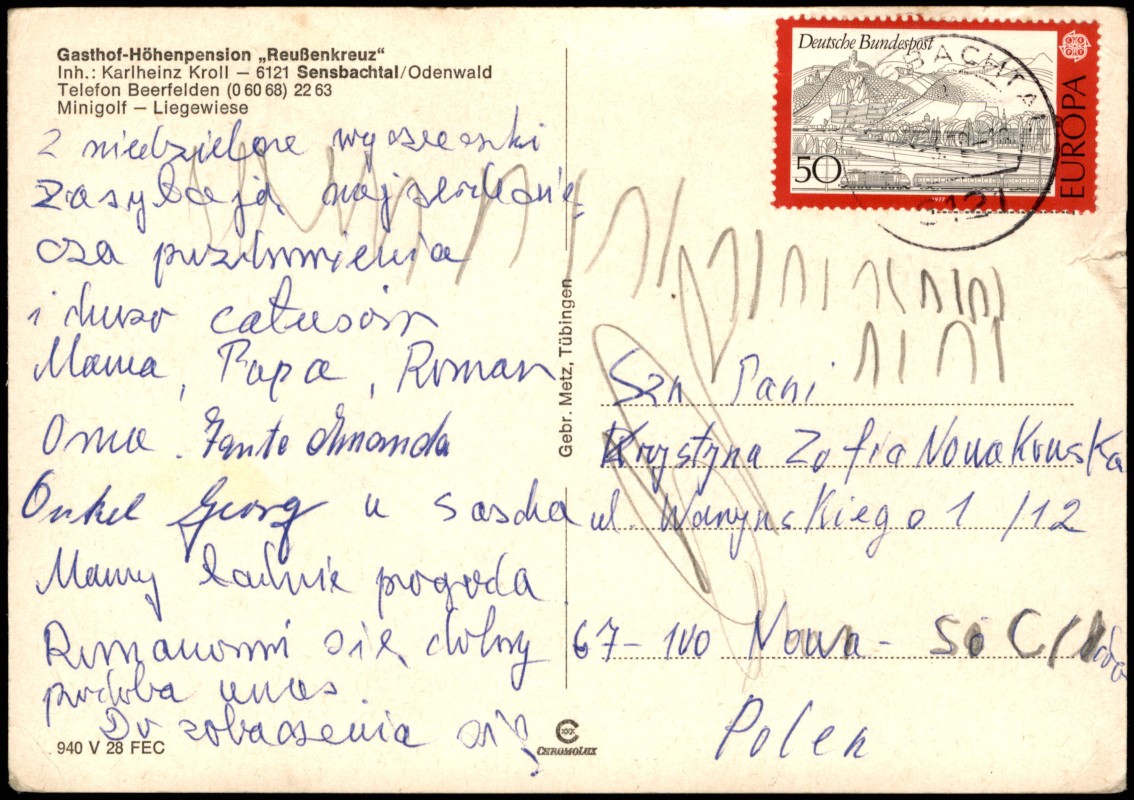 Gasthof-Höhenpension „Reußenkreuz“
Inh.: Karlheinz Kroll – 6121 Sensbachtal/Odenwald
Telefon Beerfelden (0 60 68) 22 63
Minigolf – Liegewiese
Z niedzielne wycieczki
zasyłają najserdecznie
sza pozdrowienia
i dużo całusów
Mama, Papa, Roman
Oma. Tante Amanda
Onkel Georg u Sascha
Mamy ładnie pogoda
Romanowi się dobry
podoba unas.
Do zobaczenia się
940 V 28 FEC
CHROMOLUX
Gebr. Metz, Tübingen
Deutsche Bundespost
50
EUROPA
1977
BACHTA
6121
Szn Pani
Krystyna Zofia Nowakowska
ul. Waryńskiego 1 /12
67-100 Nowa-Sól
Polen